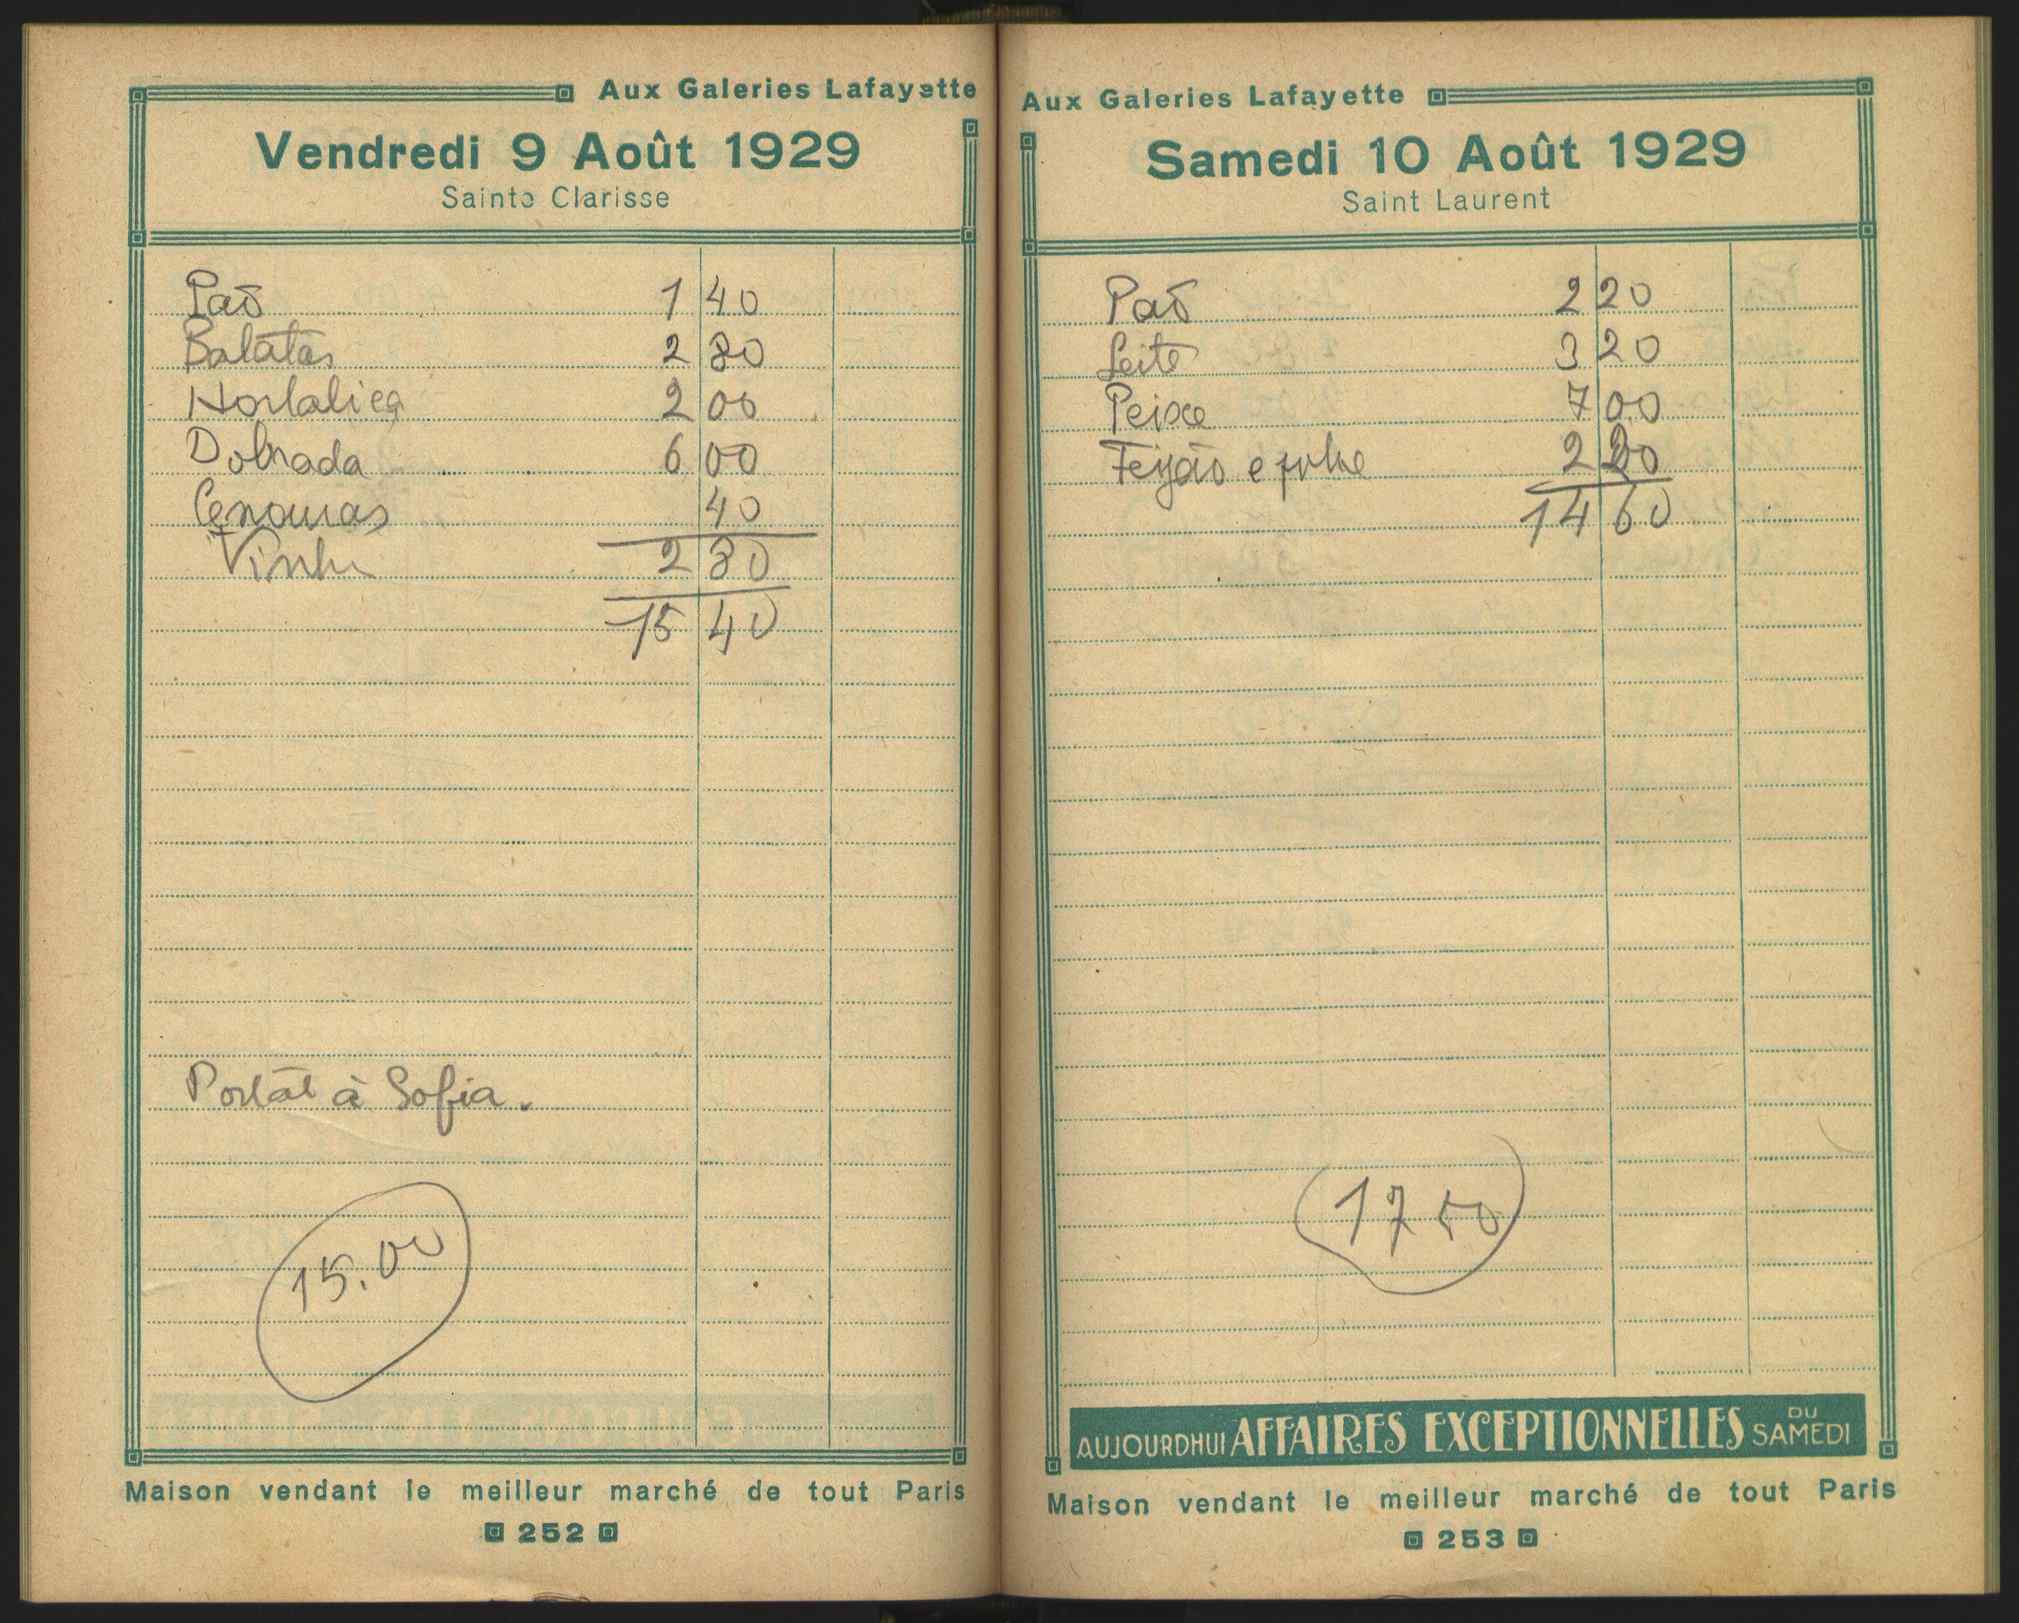 Aux Galeries Lafayette
Vendredi 9 Août 1929
Sainte Clarisse
Pão 1 40
Batatas 2 80
Hortaliça 2 00
Dobrada 6 00
Cenouras 40
Vinho 2 80
15 40
à Sofia.
15.00
Maison vendant le meilleur marché de tout Paris
252
Aux Galeries Lafayette
Samedi 10 Août 1929
Saint Laurent
Pão 2 20
Leite 3 20
Peixe 7 00
Feijão e 2 20
14 60
17 50
AUJOURDHUI AFFAIRES EXCEPTIONNELLES DU SAMEDI
Maison vendant le meilleur marché de tout Paris
253